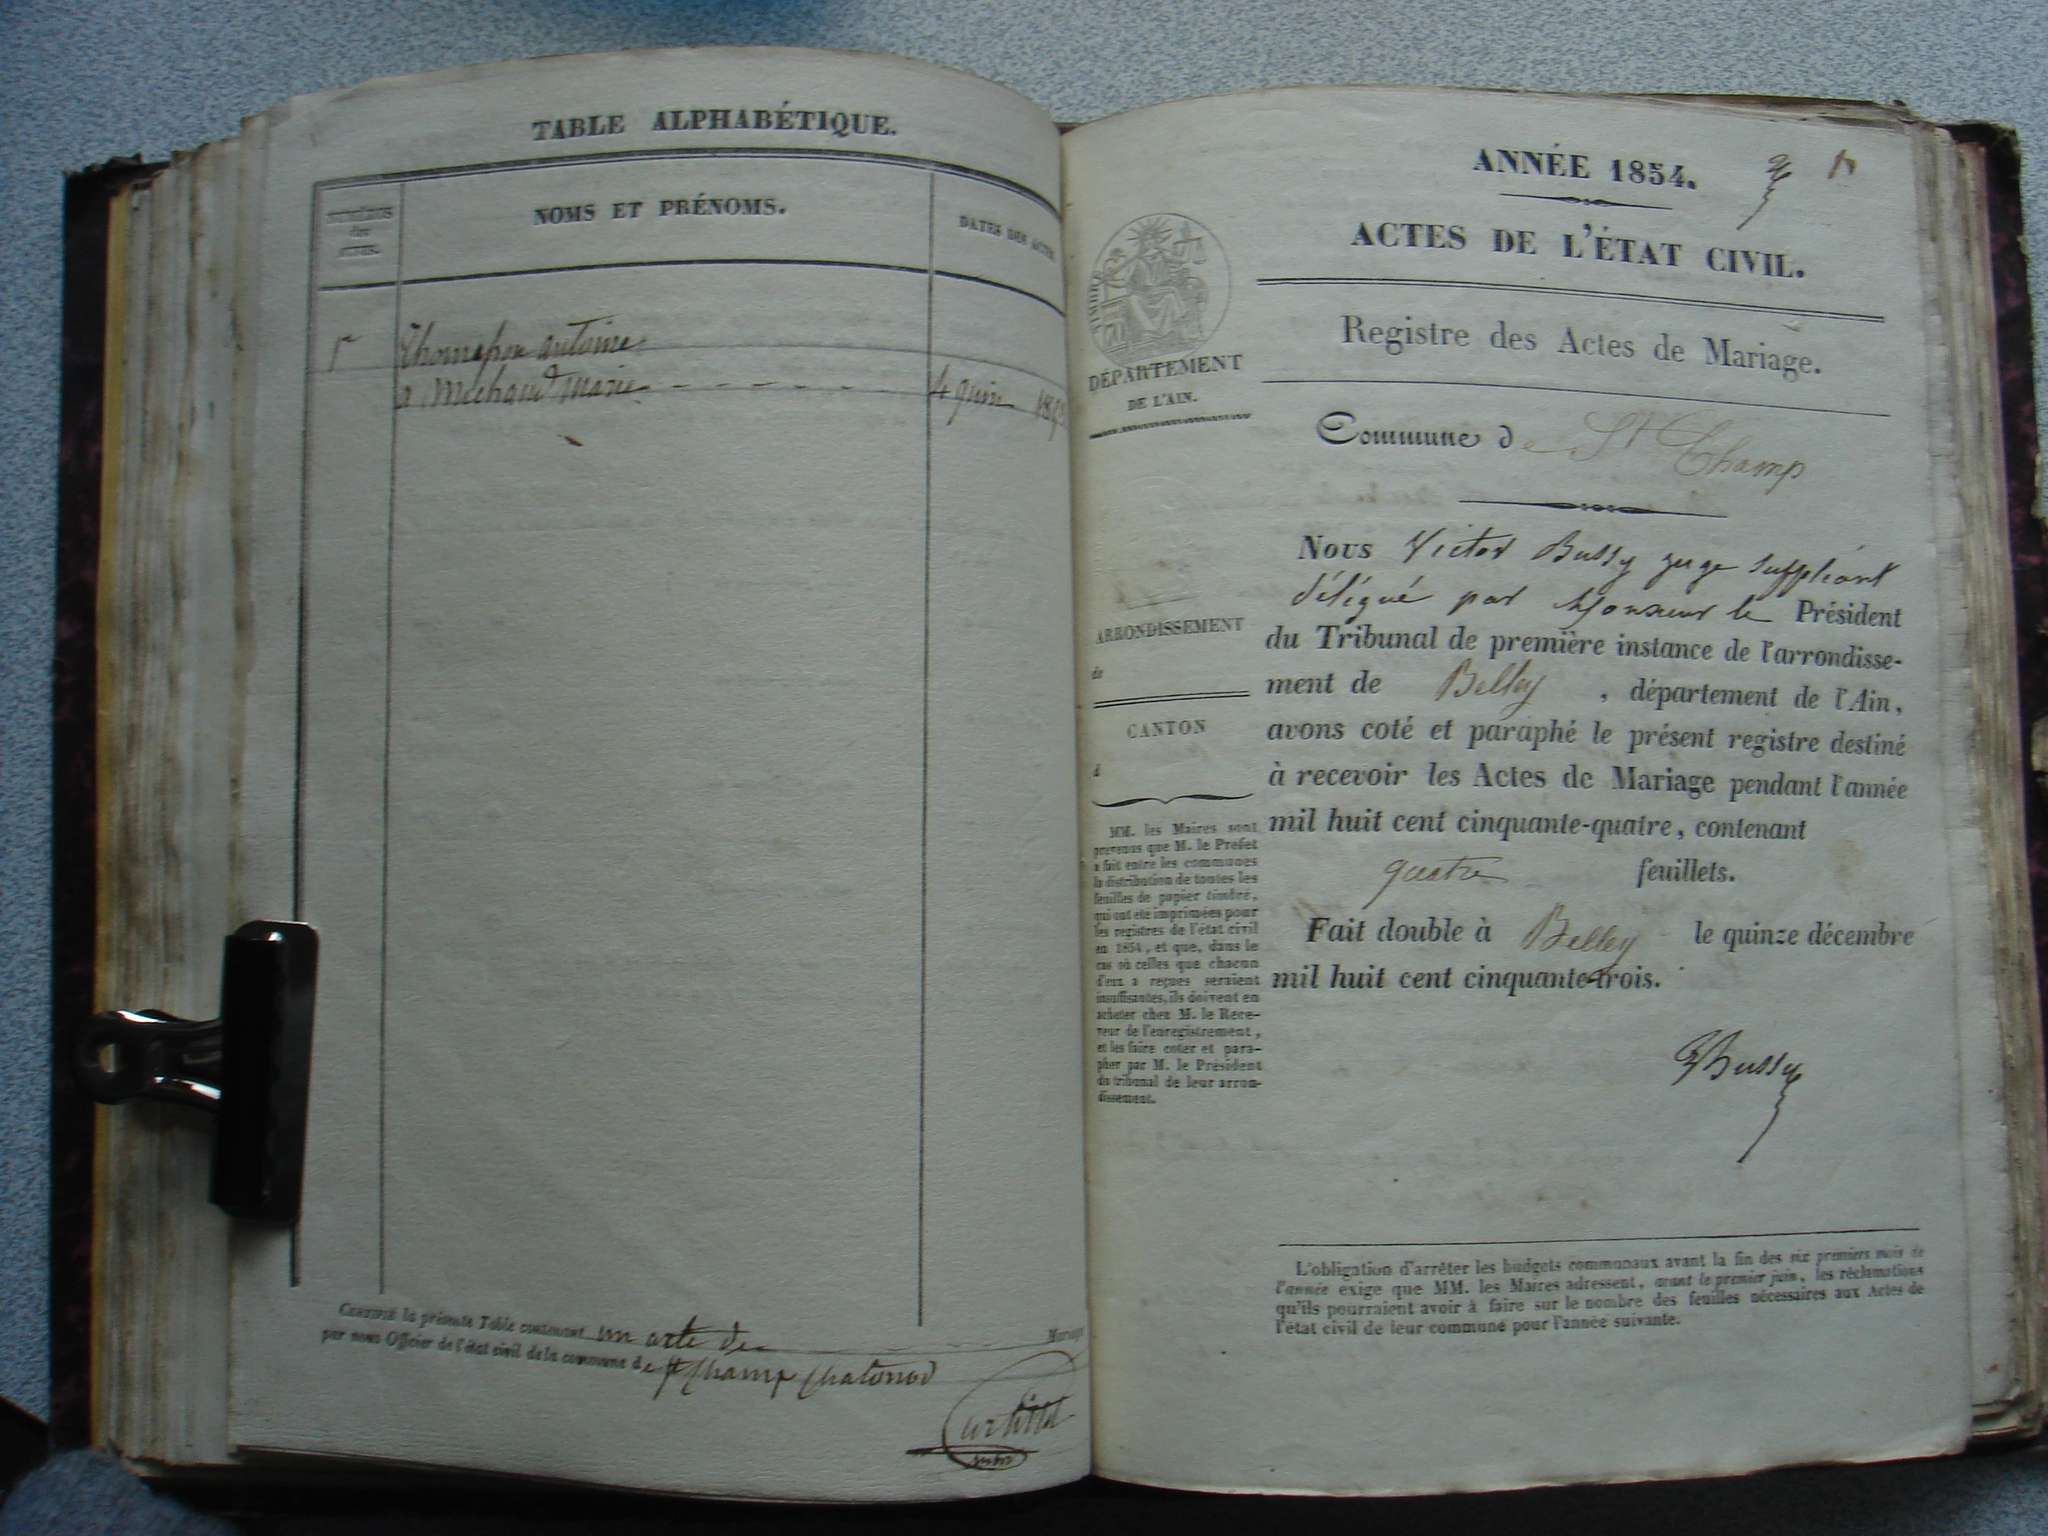 TABLE ALPHABÉTIQUE.
NUMÉROS
des
ACTES.
NOMS ET PRÉNOMS.
DATES DES ACTES.
1er
antoine
a Michaud Marie
4 juin
CERTIFIÉ la présente Table contenant un acte de Mariage
par nous Officier de l'état civil de la commune de St Champ Chatonod
ANNÉE 1854.
ACTES DE L'ÉTAT CIVIL.
Registre des Actes de Mariage.
TIMBRE
DÉPARTEMENT
DE L'AIN.
Commune de St Champ
ARRONDISSEMENT
de
CANTON
d
MM. les Maires sont
prévenus que M. le Préfet
a fait entre les communes
la distribution de toutes les
feuilles de papier timbré,
qui ont été imprimées pour
les registres de l'état civil
en 1854, et que, dans le
cas où celles que chacun
d'eux a reçues seraient
insuffisantes, ils doivent en
acheter chez M. le Rece-
veur de l'enregistrement,
et les faire coter et para-
pher par M. le Président
du tribunal de leur arron-
dissement.
Nous Victor Bussy juge suppléant
délégué par Monsieur le Président
du Tribunal de première instance de l'arrondisse-
ment de Belley , département de l'Ain,
avons coté et paraphé le présent registre destiné
à recevoir les Actes de Mariage pendant l'année
mil huit cent cinquante-quatre, contenant
quatre feuillets.
Fait double à Belley le quinze décembre
mil huit cent cinquante-trois.
VBussy
L'obligation d'arrêter les budgets communaux avant la fin des six premiers mois de
l'année exige que MM. les Maires adressent, avant le premier juin, les réclamations
qu'ils pourraient avoir à faire sur le nombre des feuilles nécessaires aux Actes de
l'état civil de leur commune pour l'année suivante.